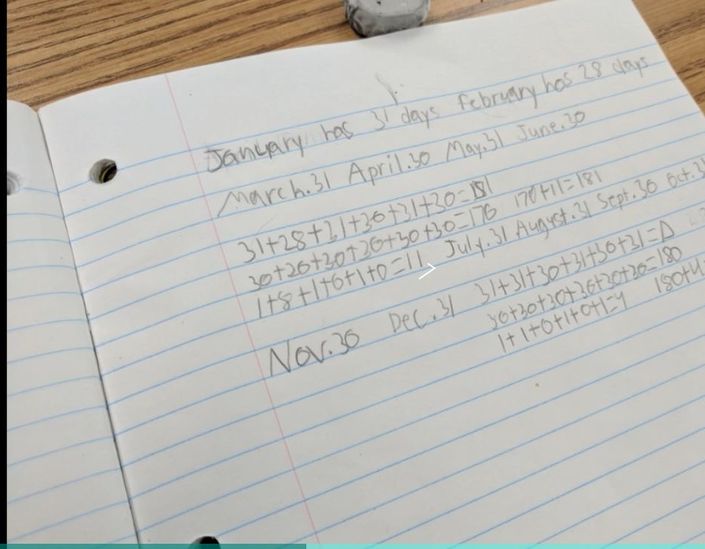 January has 31 days february has 28 days
March.31 April.30 May.31 June.30
31+28+31+30+31+30=181
30+20+30+30+30+30=170 170+11=181
1+8+1+0+1+0=11 July.31 August.31 Sept.30 Oct.31
Nov.30 Dec.31 31+31+30+31+30+31=Δ
30+30+30+30+30+30=180 180+4
1+1+0+1+0+1=4